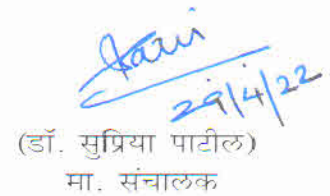 29/4/22
(डॉ. सुप्रिया पाटील)
मा. संचालक